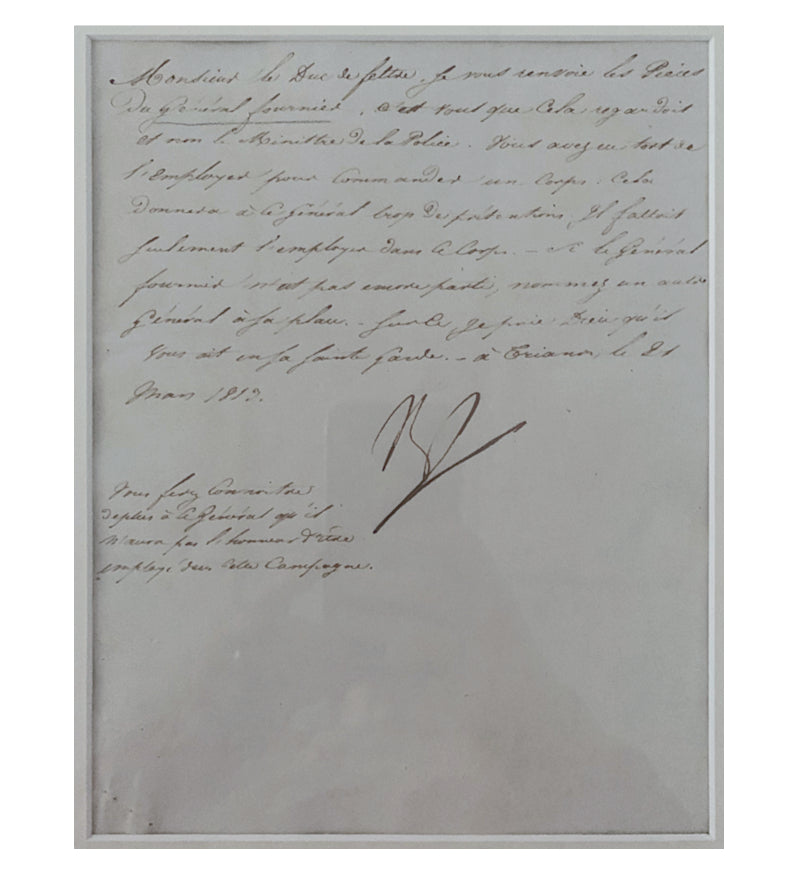 Monsieur le Duc de feltre, Je vous renvoie les Pièces
du Général fournier. C'est vous que Cela regardoit
et non le Ministre de la Police. Vous avez eu tort de
l'Employer pour Commander un Corps : Cela
donnera à ce Général trop de prétentions, Il falloit
seulement l'employer dans le Corps. - Si le Général
fournier n'est pas encore parti, nommez un autre
Général à sa place. - Sur ce, Je prie Dieu qu'il
vous ait en sa sainte garde. - à Trianon, le 21
Mars 1813.
Vous ferez Connoitre
à ce Général qu'il
n'aura pas l'honneur d'être
employé dans cette Campagne.